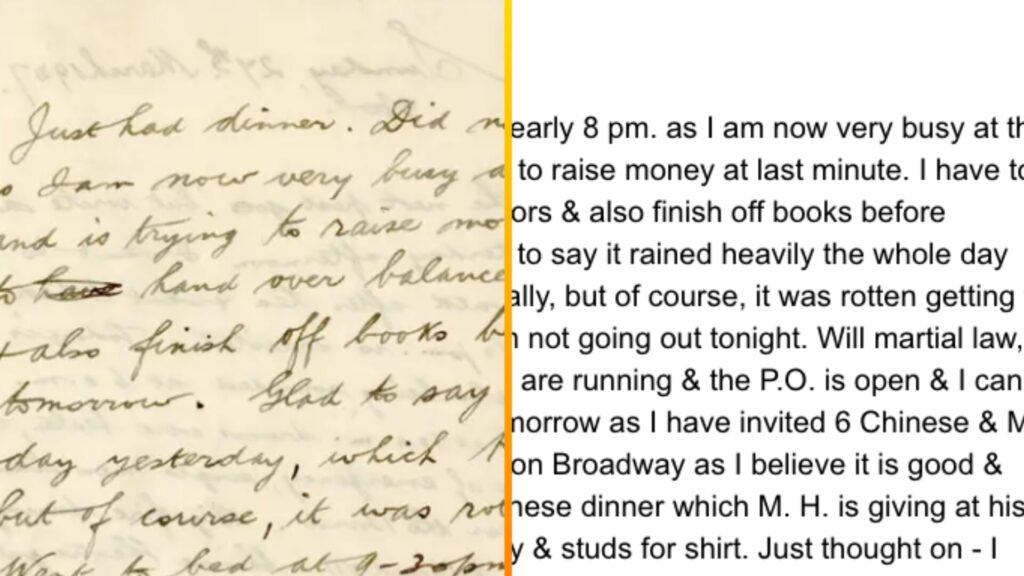 Just had dinner. Did n
I am now very busy a
and is trying to raise mo
to have hand over balance
& also finish off books b
tomorrow. Glad to say
day yesterday, which
but of course, it was rot
Went to bed at 9-30pm
early 8 pm. as I am now very busy at th
to raise money at last minute. I have to
ors & also finish off books before
to say it rained heavily the whole day
ally, but of course, it was rotten getting
not going out tonight. Will martial law,
are running & the P.O. is open & I can
morrow as I have invited 6 Chinese & M
on Broadway as I believe it is good &
nese dinner which M. H. is giving at his
y & studs for shirt. Just thought on - I